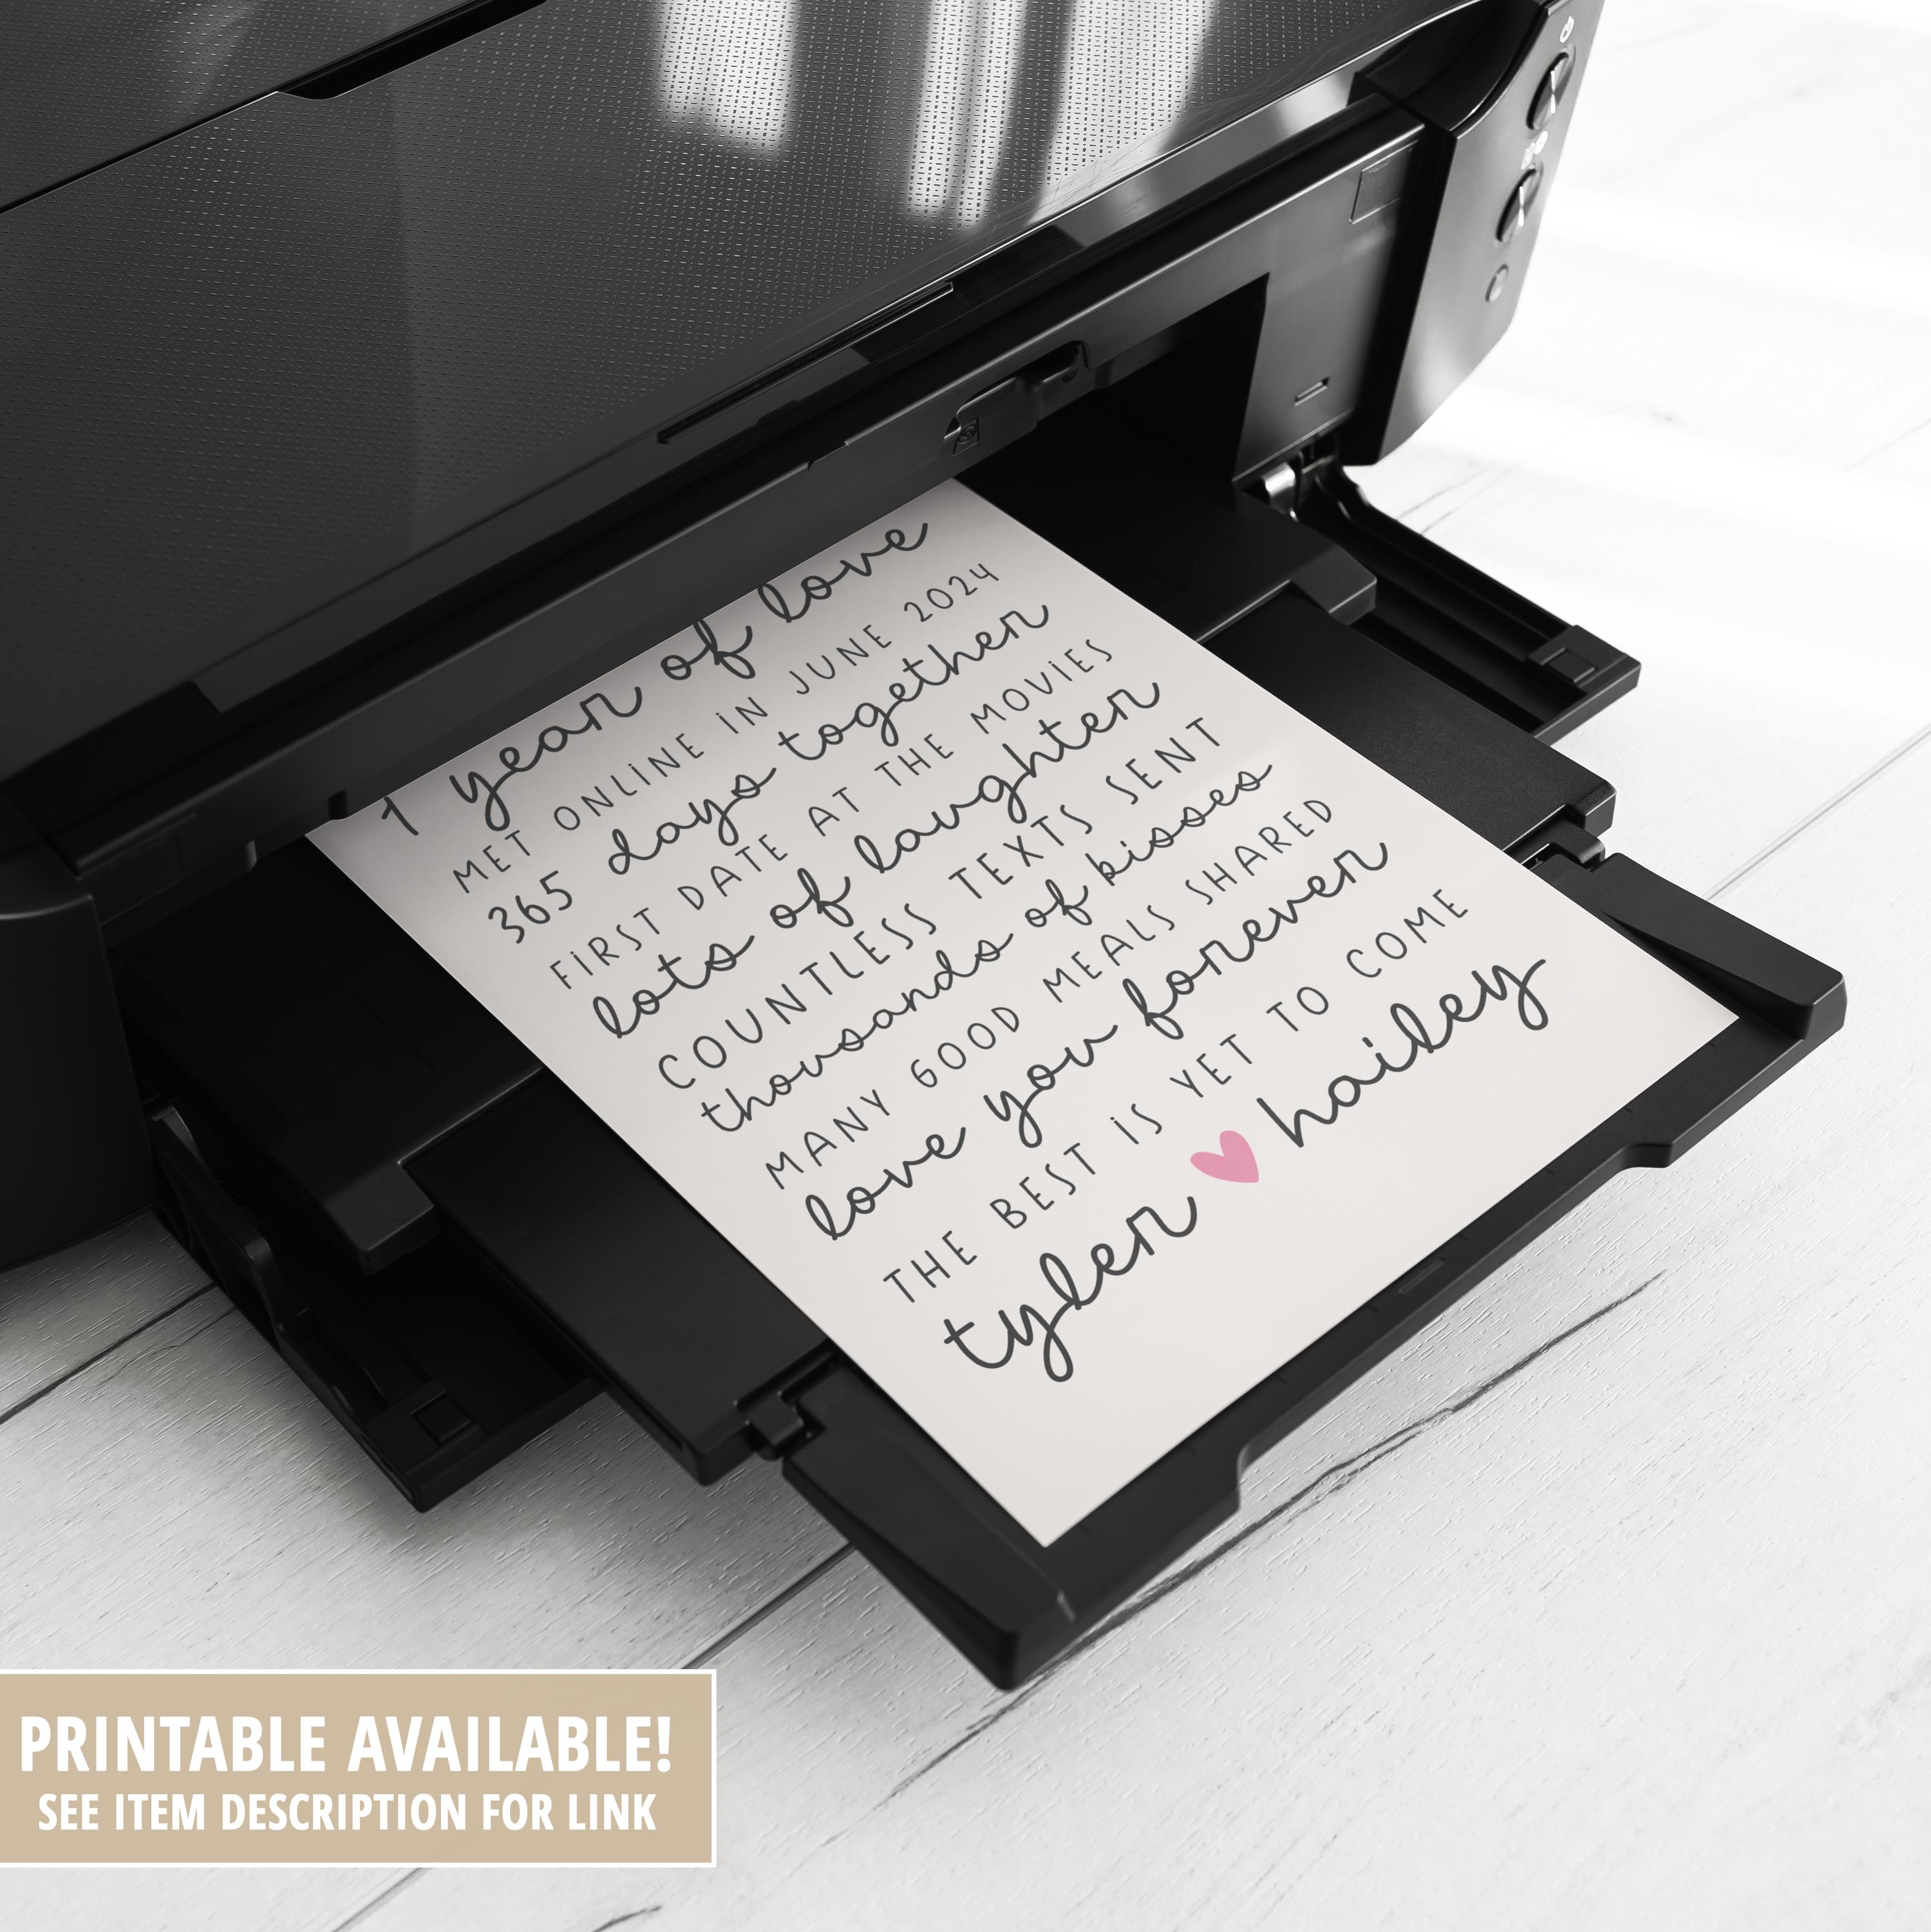 1 year of love
MET ONLINE IN JUNE 2024
365 days together
FIRST DATE AT THE MOVIES
lots of laughter
COUNTLESS TEXTS SENT
thousands of kisses
MANY GOOD MEALS SHARED
love you forever
THE BEST IS YET TO COME
tyler hailey
PRINTABLE AVAILABLE!
SEE ITEM DESCRIPTION FOR LINK